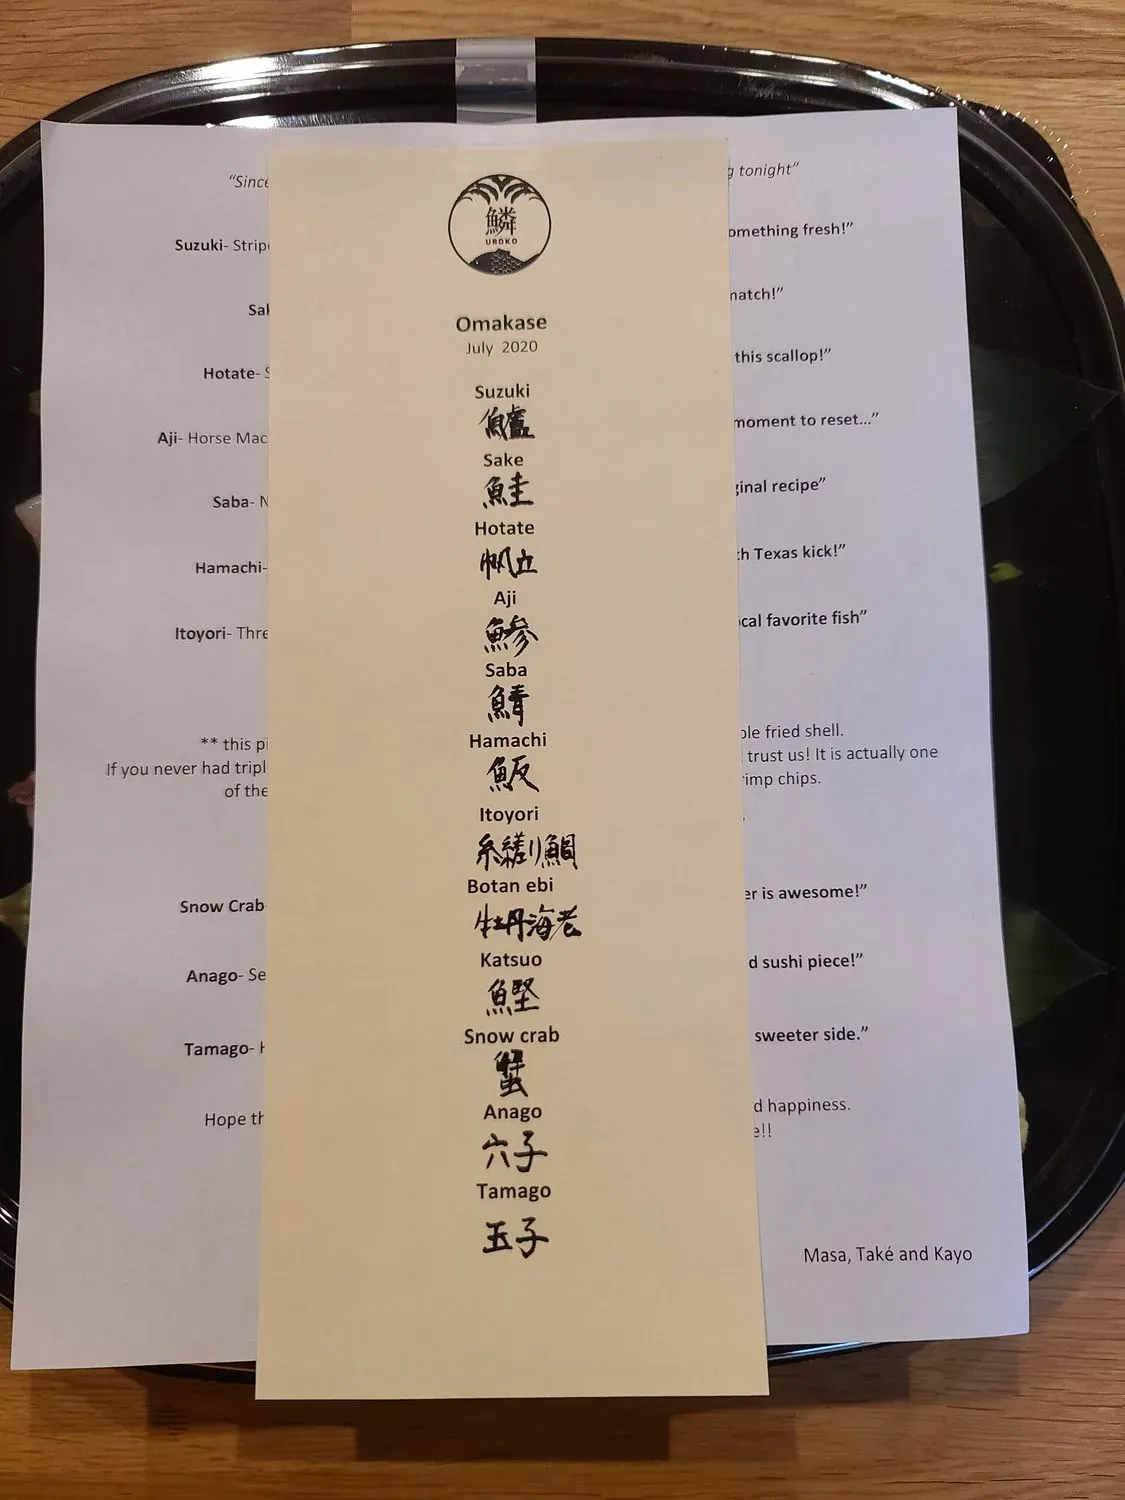 鱗
UROKO
Omakase
July 2020
Suzuki
鱸
Sake
鮭
Hotate
帆立
Aji
鯵
Saba
鯖
Hamachi
魬
Itoyori
糸縒り鯛
Botan ebi
牡丹海老
Katsuo
鰹
Snow crab
蟹
Anago
六子
Tamago
玉子
“Since tonight”
Suzuki- Strip omething fresh!”
natch!”
Hotate- this scallop!”
Aji- Horse Mac moment to reset...”
Saba- ginal recipe”
Hamachi- h Texas kick!”
Itoyori- Thre cal favorite fish”
** this pi ple fried shell.
If you never had tripl trust us! It is actually one
of the imp chips.
Snow Crab- er is awesome!”
Anago- Se d sushi piece!”
Tamago- sweeter side.”
Hope th d happiness.
e!!
Masa, Také and Kayo